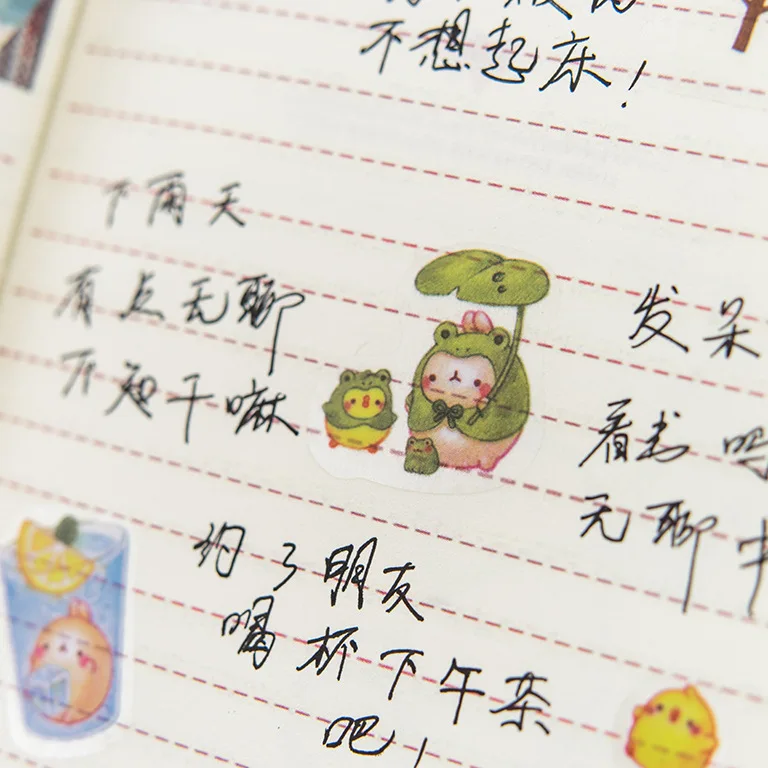 不想起床!
下雨天
有点无聊
不知干嘛
发呆
看书
无聊中
约了朋友
喝杯下午茶
吧!